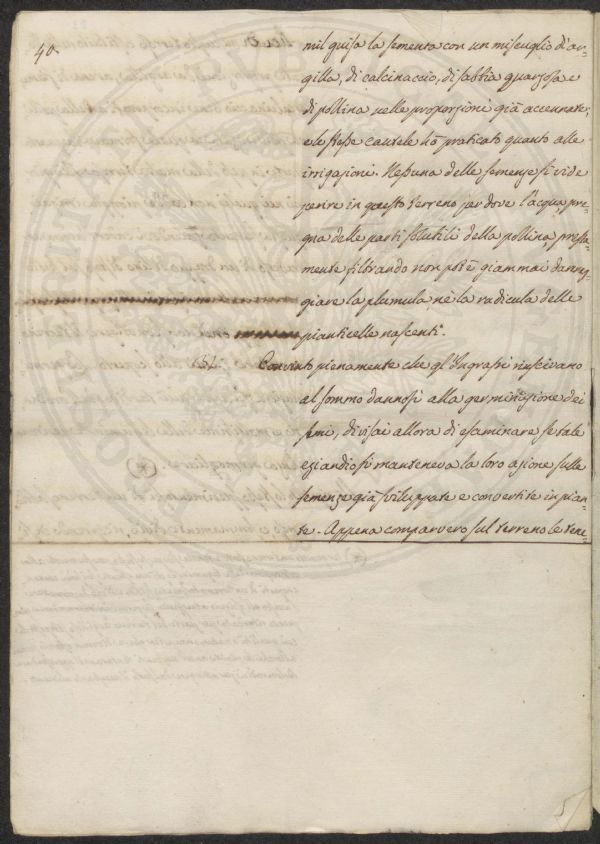 40.
mil guisa la sementa con un miscuglio d'ar-
gilla, di calcinaccio, di sabbia quarzosa e
di pollina nelle proporzioni già accennate;
e le stesse cautele hò praticato quanto alle
irrigazioni. Nessuna delle semenze si vide
perire in questo terreno per dove l'acqua pre-
gna delle parti solutili della pollina presta-
mente filtrando non potè giammai danneg-
giare la plumula, nè la radicula delle
pianticelle nascenti.
Convinto pienamente che gl'Ingrassi riuscivano
al sommo dannosi alla germinazione dei
semi, divisai allora di esaminare se tale
eziandio si manteneva la loro azione sulle
semenze già sviluppate e convertite in pian-
te. Appena comparvero sul terreno le tene-